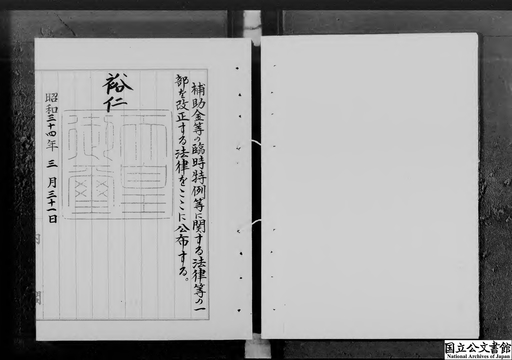 補助金等の臨時特例等に関する法律等の一
部を改正する法律をここに公布する。
裕仁
天皇
御璽
昭和三十四年三月三十一日
国立公文書館
National Archives of Japan